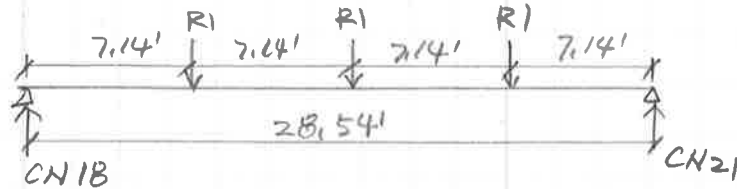 R1 R1 R1
7.14' 7.14' 7.14' 7.14'
28.54'
CN18 CN21